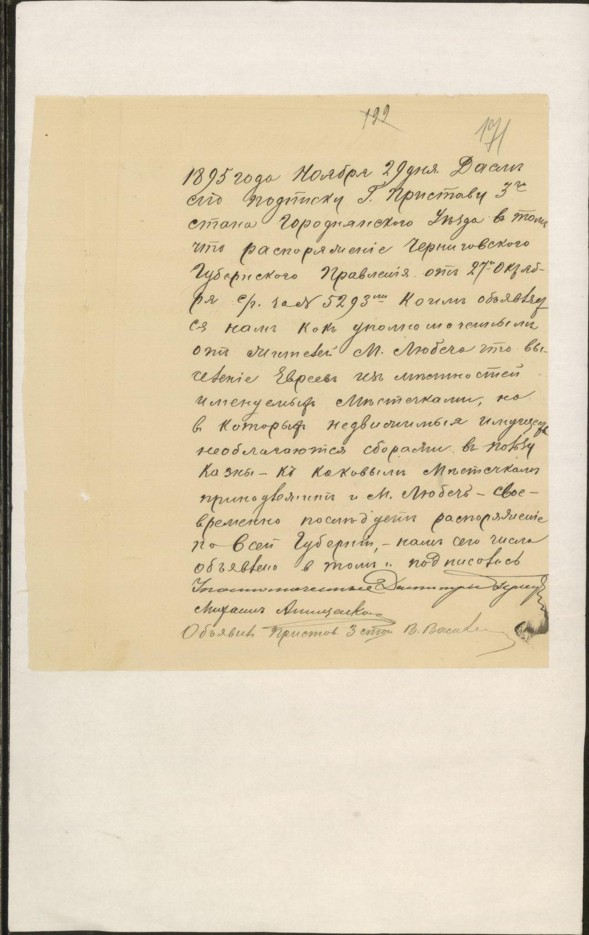 122
171
1895 года Ноября 29 дня Далъ
сію подписку Г. Приставу 3го
стана Городнянскаго Уѣзда в томъ
что распоряженіе Черниговского
Губернского Правленія отъ 27го Октяб-
ря с/г. за № 5293мъ коимъ объявляет
ся намъ какъ уполномоченнымъ
отъ жителей М. Любеча что вы-
селеніе Евреевъ изъ мѣстностей
именуемыхъ Мѣстечками, но
в которыхъ недвижимыя имущества
необлагаются сборами въ пользу
казны – къ каковымъ Мѣстечкамъ
принадлежитъ и М. Любечъ – свое-
временно послѣдуетъ распоряженіе
по всей Губерніи, – намъ сего числа
объявлено в томъ и подписались
Уполномоченные Димитрій
Михаилъ
Объявилъ Приставъ 3 стана В.